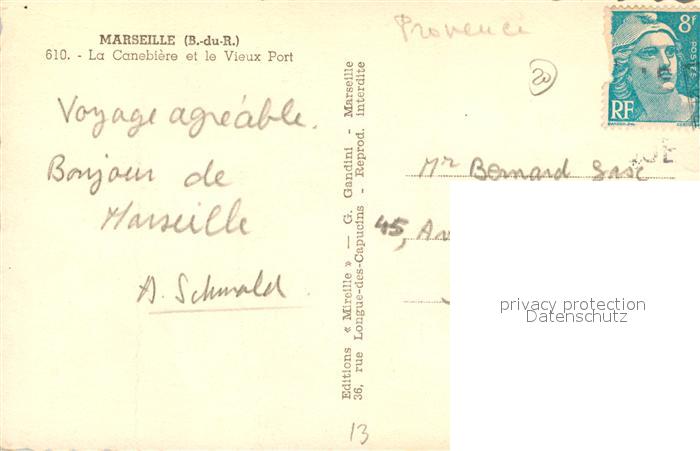 MARSEILLE (B.-du-R.)
610. - La Canebière et le Vieux Port
Voyage agréable.
Bonjour de
Marseille
Editions « Mireille » — G. Gandini - Marseille
36, rue Longue-des-Capucins - Reprod. interdite
Provence
20
8F
POSTES
RF
Mr Bernard
45, Av
privacy protection
Datenschutz
13